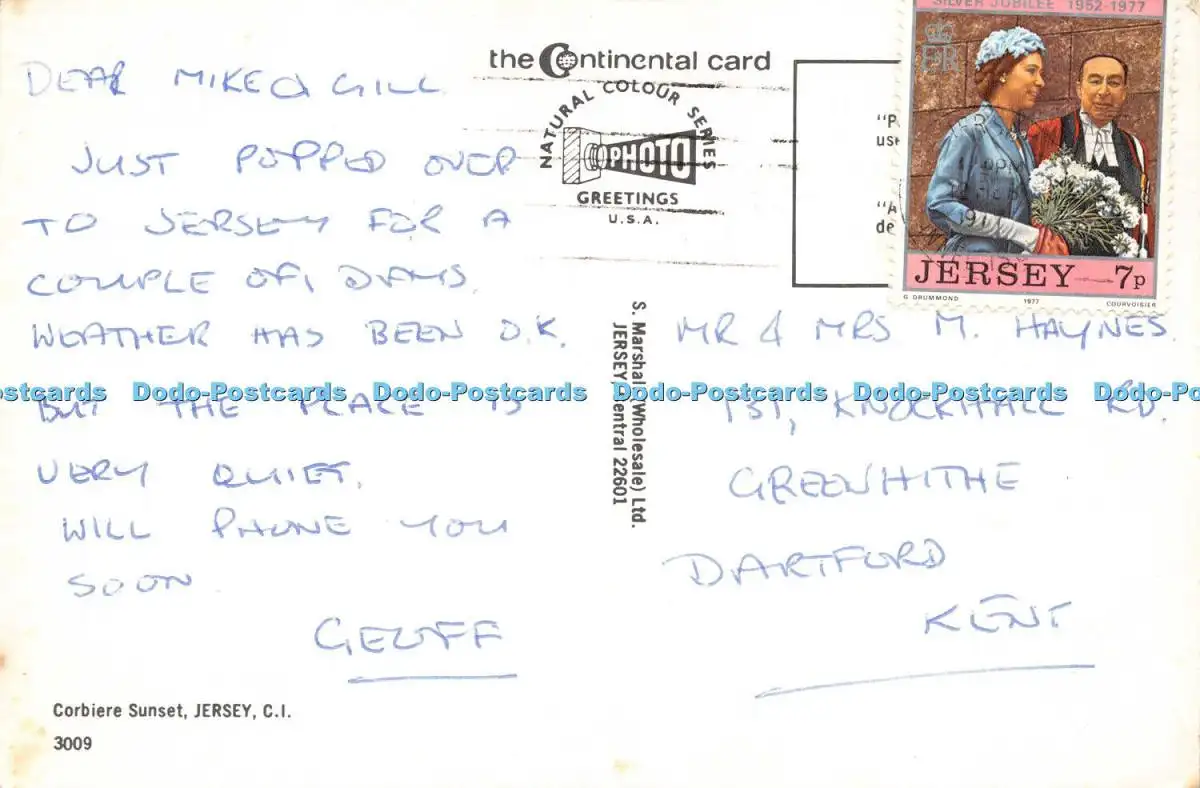 DEAR MIKE & GILL
JUST POPPED OVER
TO JERSEY FOR A
COUPLE OF DAYS.
WEATHER HAS BEEN O.K.
BUT THE PLACE IS
VERY QUIET.
WILL PHONE YOU
SOON.
GEOFF
Corbiere Sunset, JERSEY, C.I.
3009
the Continental card
NATURAL COLOUR SERIES
PHOTO
GREETINGS
U.S.A.
S. Marshall (Wholesale) Ltd.
JERSEY Central 22601
"P
use
"A
de
SILVER JUBILEE 1952-1977
ER
JERSEY 7p
G DRUMMOND 1977 COURVOISIER
MR & MRS M. HAYNES.
151, KNOCKHALL RD.
GREENHITHE
DARTFORD
KENT
ostcards Dodo-Postcards Dodo-Postcards Dodo-Postcards Dodo-Postcards Dodo-Po